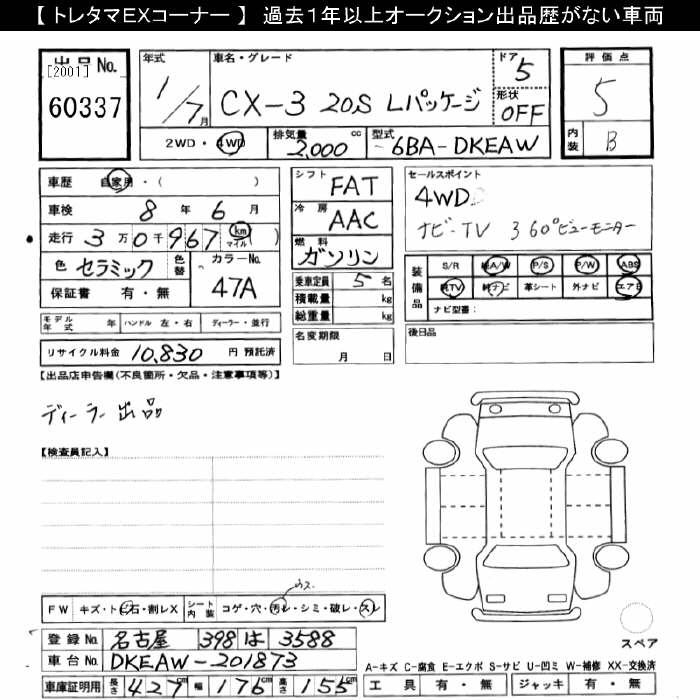 【 トレタマEXコーナー 】 過去1年以上オークション出品歴がない車両
出品 No. [2001] 60337
年式 1/7月
車名・グレード CX-3 20S Lパッケージ
ドア 5
形状 OFF
評価点 5
内装 B
2WD・4WD
排気量 2,000 cc
型式 -6BA-DKEAW
車歴 自家用・( )
車検 8 年 6 月
走行 3 万 0 千 9 6 7 km マイル ( )
色 セラミック 色替 カラーNo. 47A
保証書 有・無
シフト FAT
冷房 AAC
燃料 ガソリン
乗車定員 5 名
積載量 kg
総重量 kg
セールスポイント
4WD
ナビ-TV 360°ビューモニター
装備品 S/R 純A/W P/S P/W ABS
純TV 純ナビ 革シート 外ナビ エアB
ナビ型番:
モデル年式 年 ハンドル 左・右 ディーラー・並行
リサイクル料金 10,830 円 預託済
名変期限 月 日
後日品
【出品店申告欄(不良箇所・欠品・注意事項等)】
ディーラー出品
【検査員記入】
ウス
FW キズ・トビ石・割レX シート内装 コゲ・穴・汚レ・シミ・破レ・スレ
スペア
登録 No. 名古屋 398 は 3588
車台 No. DKEAW-201873
車庫証明用 長さ 427 cm 幅 176 cm 高さ 155 cm
A-キズ C-腐食 E-エクボ S-サビ U-凹ミ W-補修 XX-交換済
工具 有・無 ジャッキ 有・無